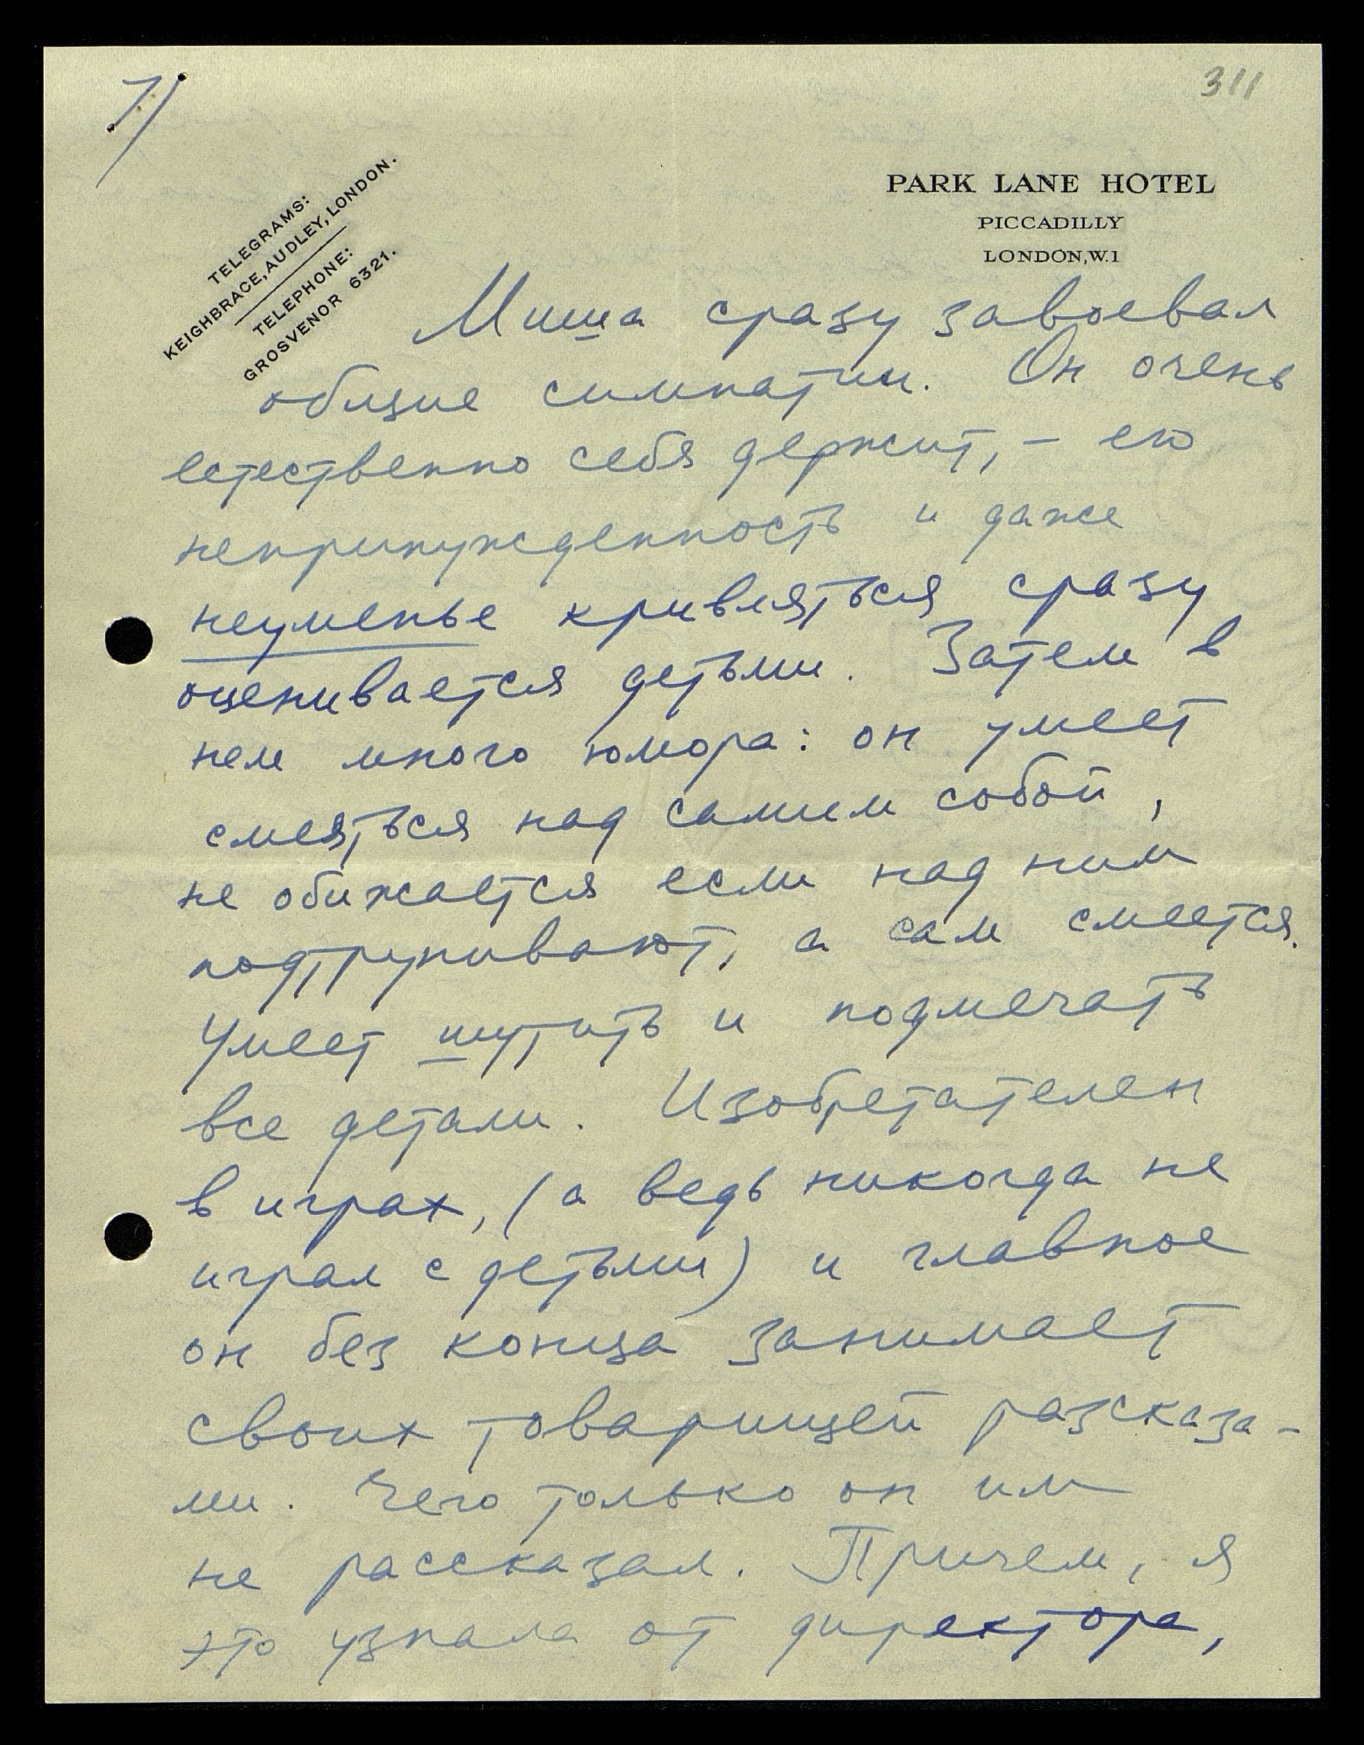 7/
311
TELEGRAMS:
KEIGHBRACE, AUDLEY, LONDON.
TELEPHONE:
GROSVENOR 6321.
PARK LANE HOTEL
PICCADILLY
LONDON, W.1
Миша сразу завоевал
общие симпатии. Он очень
естественно себя держит, – его
непринужденность и даже
неуменье кривляться сразу
оценивается детьми. Затем в
нем много юмора: он умеет
смеяться над самим собой,
не обижается если над ним
подтрунивают, а сам смеется.
Умеет шутить и подмечать
все детали. Изобретателен
в играх, (а ведь никогда не
играл с детьми) и главное
он без конца занимает
своих товарищей разсказа-
ми. Чего только он им
не рассказал. Причем, я
это узнала от директора,